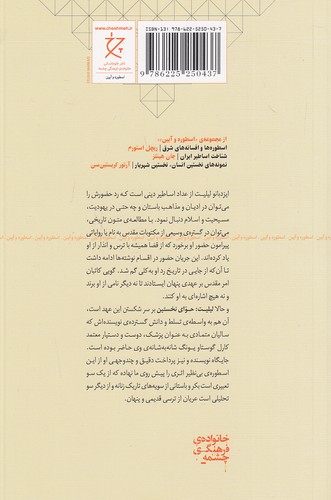 www.cheshmeh.ir
اسطوره و آیین
ISBN (13): 978-622-5250-43-7
9 786225 250437
از مجموعه‌ی «اسطوره و آیین»:
اسطوره‌ها و افسانه‌های شرق | ریچل استورم
شناخت اساطیر ایران | جان هینلز
نمونه‌های نخستین انسان، نخستین شهریار | آرتور کریستین‌سن
ایزدبانو لیلیت از عداد اساطیر دینی است که رد حضورش را
می‌توان در ادیان و مذاهب باستان و چه حتی در یهودیت،
مسیحیت و اسلام دنبال نمود. با مطالعه‌ی متون تاریخی،
می‌توان در گستره‌ی وسیعی از مکتوبات مقدس به نام یا روایاتی
پیرامون حضور او برخورد که از قضا همیشه با ترس و انذار از او
یاد کرده‌اند. این جریان حضور در اقسام نوشته‌ها ادامه داشت
تا آن‌که از جایی در تاریخ رد او به‌کلی گم شد. گویی کاتبان
امر مقدس بر عهدی پنهان ایستادند تا نه دیگر نامی از او برند
و نه هیچ اشاره‌ای به او کنند.
و حالا لیلیت: حوّای نخستین بر سر شکستن این عهد است،
آن هم به‌واسطه‌ی تسلط و دانش گسترده‌ی نویسنده‌اش که
سالیان متمادی به عنوان پزشک، دوست و دستیار معتمد
کارل گوستاو یونگ شانه‌به‌شانه‌ی وی حاضر بوده است.
جایگاه نویسنده و نیز پرداخت دقیق و چندوجهی او از این
اسطوره‌ی بی‌نظیر اثری را پیش روی ما نهاده که از یک سو
تعبیری است بکر و باستانی از سویه‌های تاریک زنانه و از دیگر سو
تحلیلی است عریان از ترسی قدیمی و پنهان.
خانواده‌ی
فرهنگی
چشمه